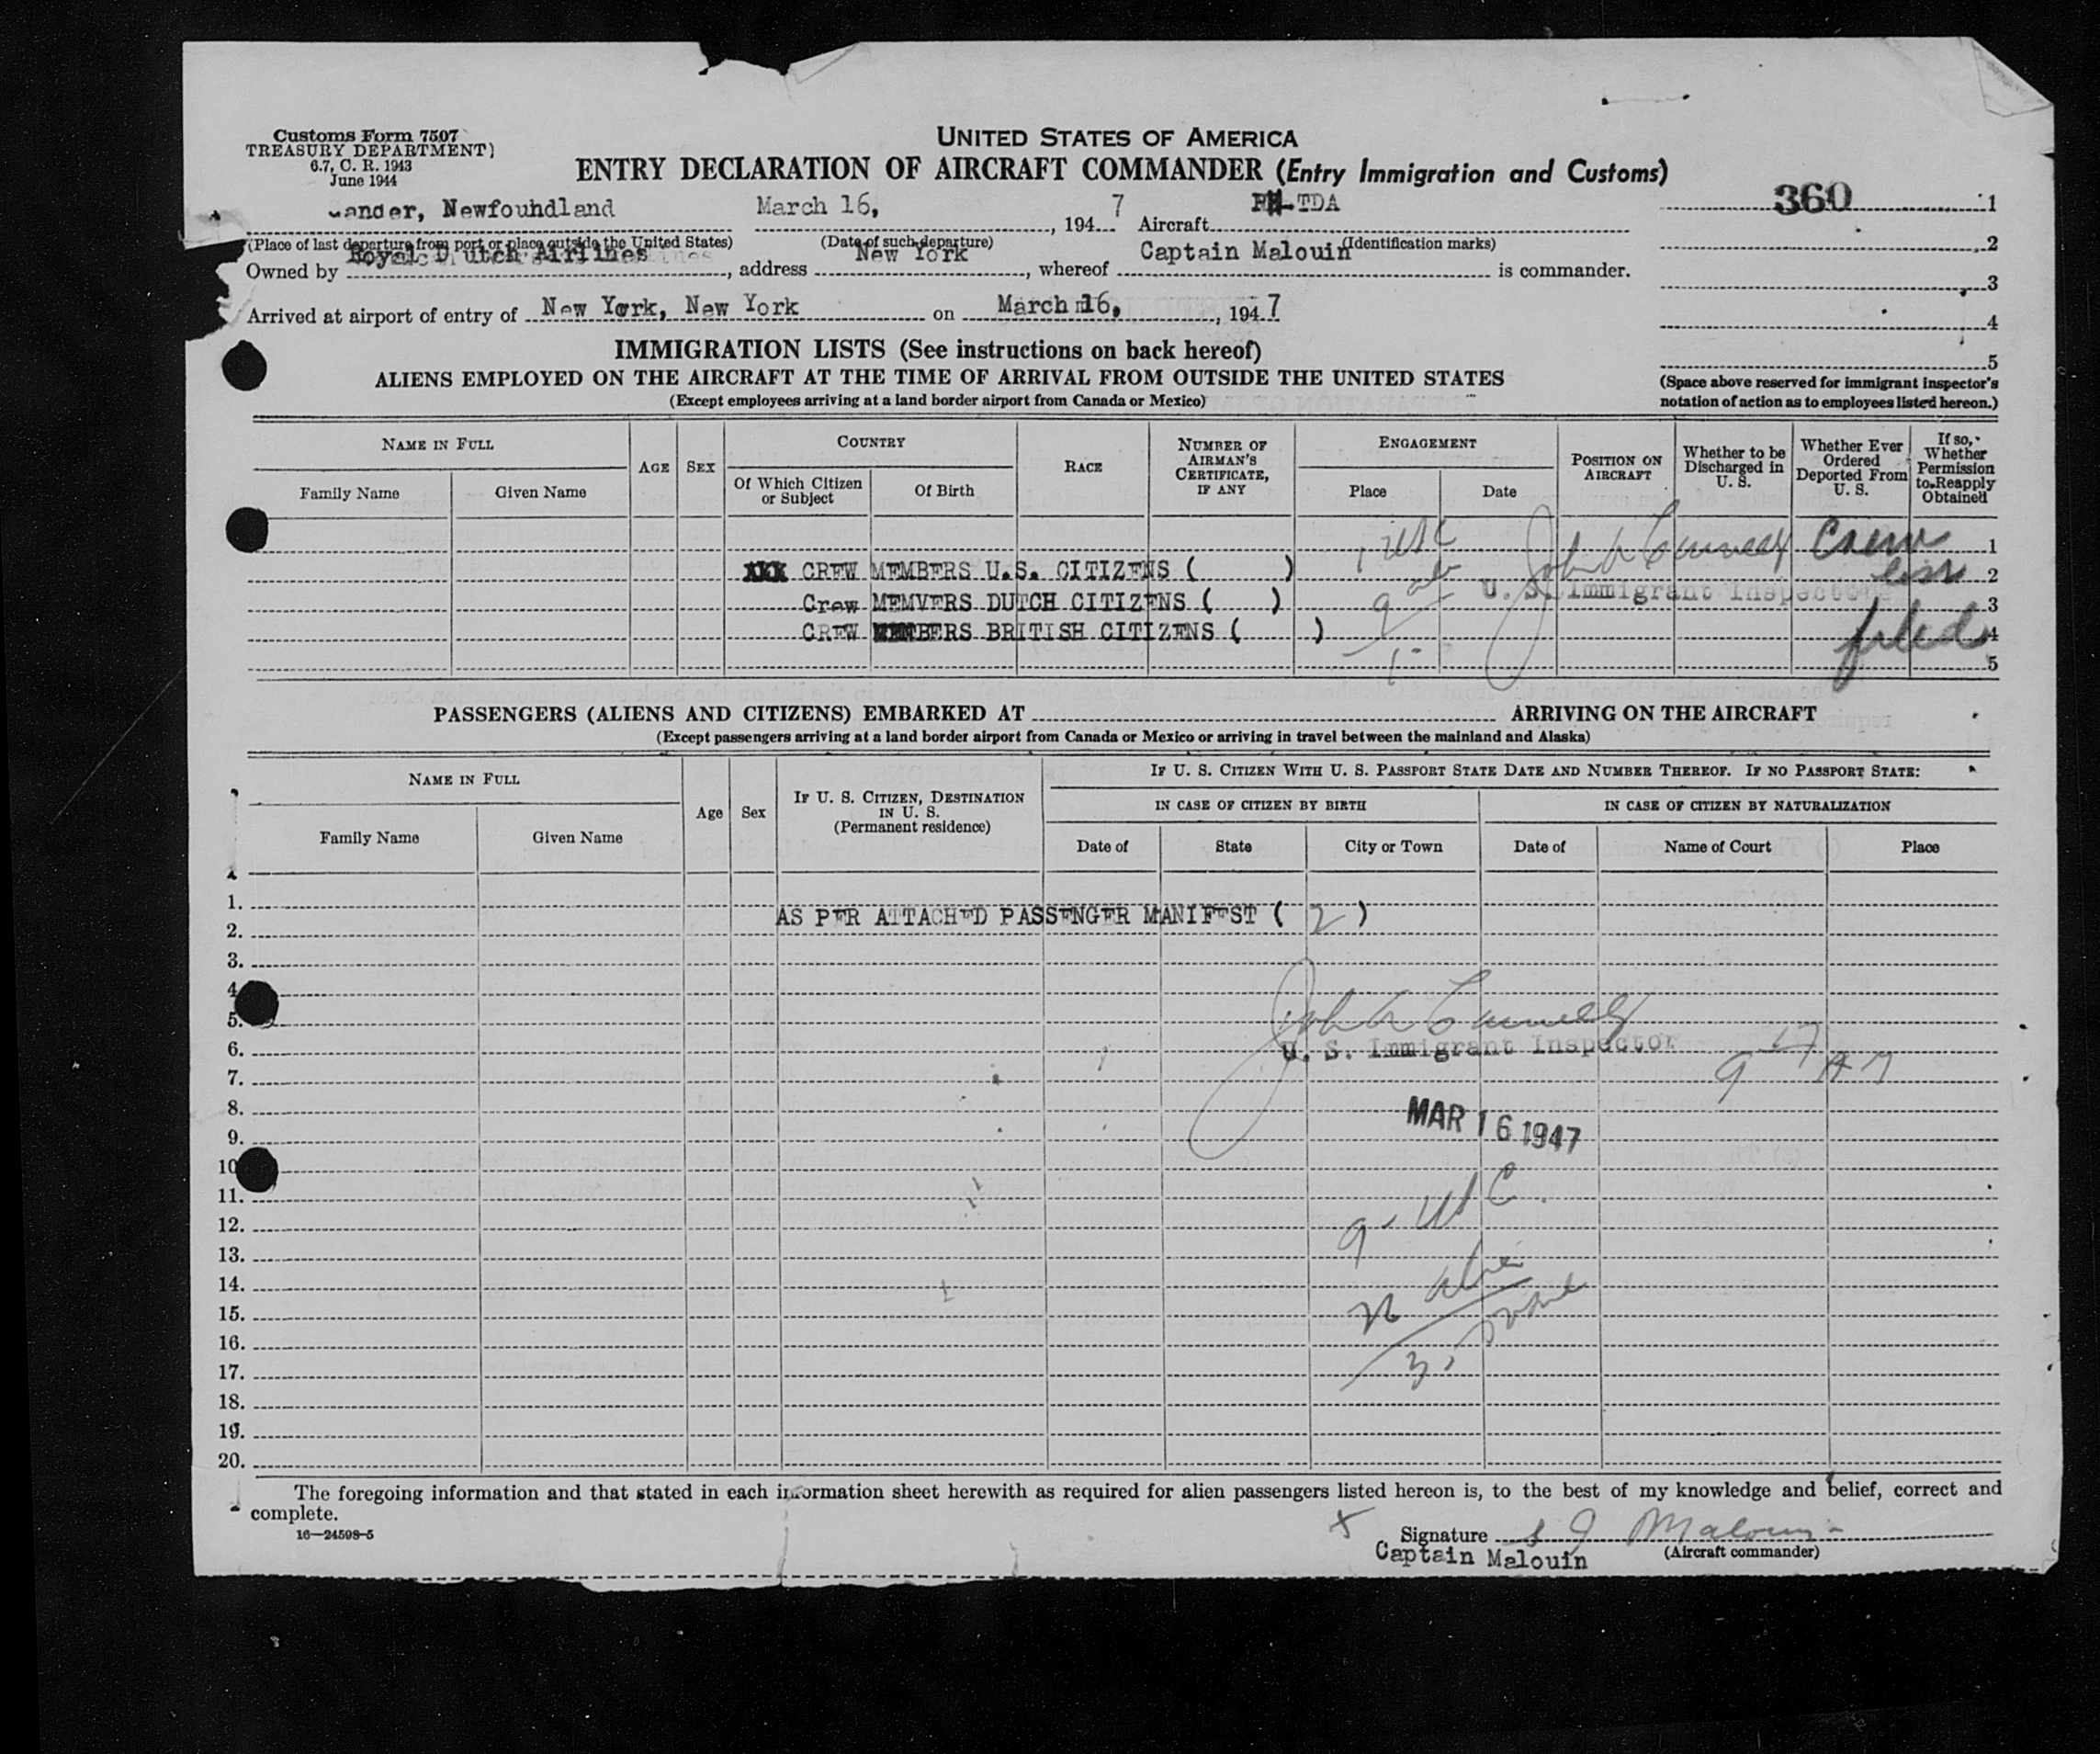 Customs Form 7507
TREASURY DEPARTMENT)
6.7, C. R. 1943
June 1944
UNITED STATES OF AMERICA
ENTRY DECLARATION OF AIRCRAFT COMMANDER (Entry Immigration and Customs)
360 1
ander, Newfouhdland March 16, , 194 7 Aircraft PH-TDA
(Place of last departure from port or place outside the United States) (Date of such departure) (Identification marks)
2
Owned by Royal Dutch Airlines , address New York , whereof Captain Malouin is commander.
3
Arrived at airport of entry of New York, New York on March 16, , 194 7
4
IMMIGRATION LISTS (See instructions on back hereof)
5
ALIENS EMPLOYED ON THE AIRCRAFT AT THE TIME OF ARRIVAL FROM OUTSIDE THE UNITED STATES
(Except employees arriving at a land border airport from Canada or Mexico)
(Space above reserved for immigrant inspector's
notation of action as to employees listed hereon.)
NAME IN FULL
Family Name Given Name
AGE
SEX
COUNTRY
Of Which Citizen
or Subject
Of Birth
RACE
NUMBER OF
AIRMAN'S
CERTIFICATE,
IF ANY
ENGAGEMENT
Place Date
POSITION ON
AIRCRAFT
Whether to be
Discharged in
U. S.
Whether Ever
Ordered
Deported From
U. S.
If so,
Whether
Permission
to Reapply
Obtained
1 USC Crew 1
XXX CREW MEMBERS U.S. CITIZENS ( ) list 2
U. S. Immigrant Inspector
Crew MEMVERS DUTCH CITIZENS ( ) 9 3
CREW MEMBERS BRITISH CITIZENS ( ) filed 4
5
PASSENGERS (ALIENS AND CITIZENS) EMBARKED AT ARRIVING ON THE AIRCRAFT
(Except passengers arriving at a land border airport from Canada or Mexico or arriving in travel between the mainland and Alaska)
NAME IN FULL
Family Name Given Name
Age
Sex
IF U. S. CITIZEN, DESTINATION
IN U. S.
(Permanent residence)
IF U. S. CITIZEN WITH U. S. PASSPORT STATE DATE AND NUMBER THEREOF. IF NO PASSPORT STATE:
IN CASE OF CITIZEN BY BIRTH IN CASE OF CITIZEN BY NATURALIZATION
Date of State City or Town Date of Name of Court Place
1.
AS PER ATTACHED PASSENGER MANIFEST ( 2 )
2.
3.
4
5.
6.
U. S. Immigrant Inspector
7. 9 17 AM
8.
MAR 16 1947
9.
10
11.
12. 9 - USC
13.
14.
15.
16.
17. 3
18.
19.
20.
The foregoing information and that stated in each information sheet herewith as required for alien passengers listed hereon is, to the best of my knowledge and belief, correct and
complete.
16—24598-5
x Signature Malouin
Captain Malouin (Aircraft commander)